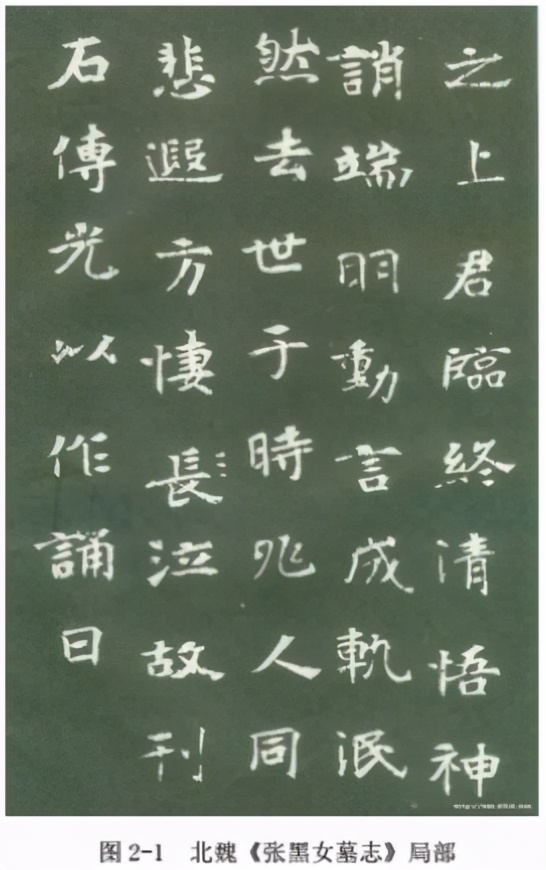 之上君臨終清悟神
誚端明動言成軌泯
然去世于時兆人同
悲遐方悽長泣故刊
石傳光以作誦曰
图2-1 北魏《张黑女墓志》局部